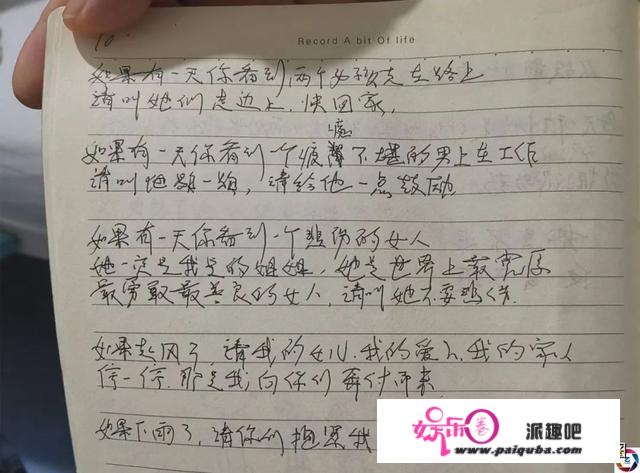 10
Record A bit Of life
如果有一天你看到两个女孩走在路上
请叫她们走边上,快回家,
惫
如果有一天你看到一个疲不堪的男士在工作
请叫他歇一歇,请给他一点鼓励
如果有一天你看到一个悲伤的女人
她一定是我的姐姐,她是世界上最宽厚
最勇敢最善良的女人,请叫她不要悲伤.
如果起风了,请我的女儿.我的爱人.我的家人
停一停,那是我向你们奔付而来
如果下雨了,请你们抱紧我
娱乐圈 派趣吧
www.paiquba.com